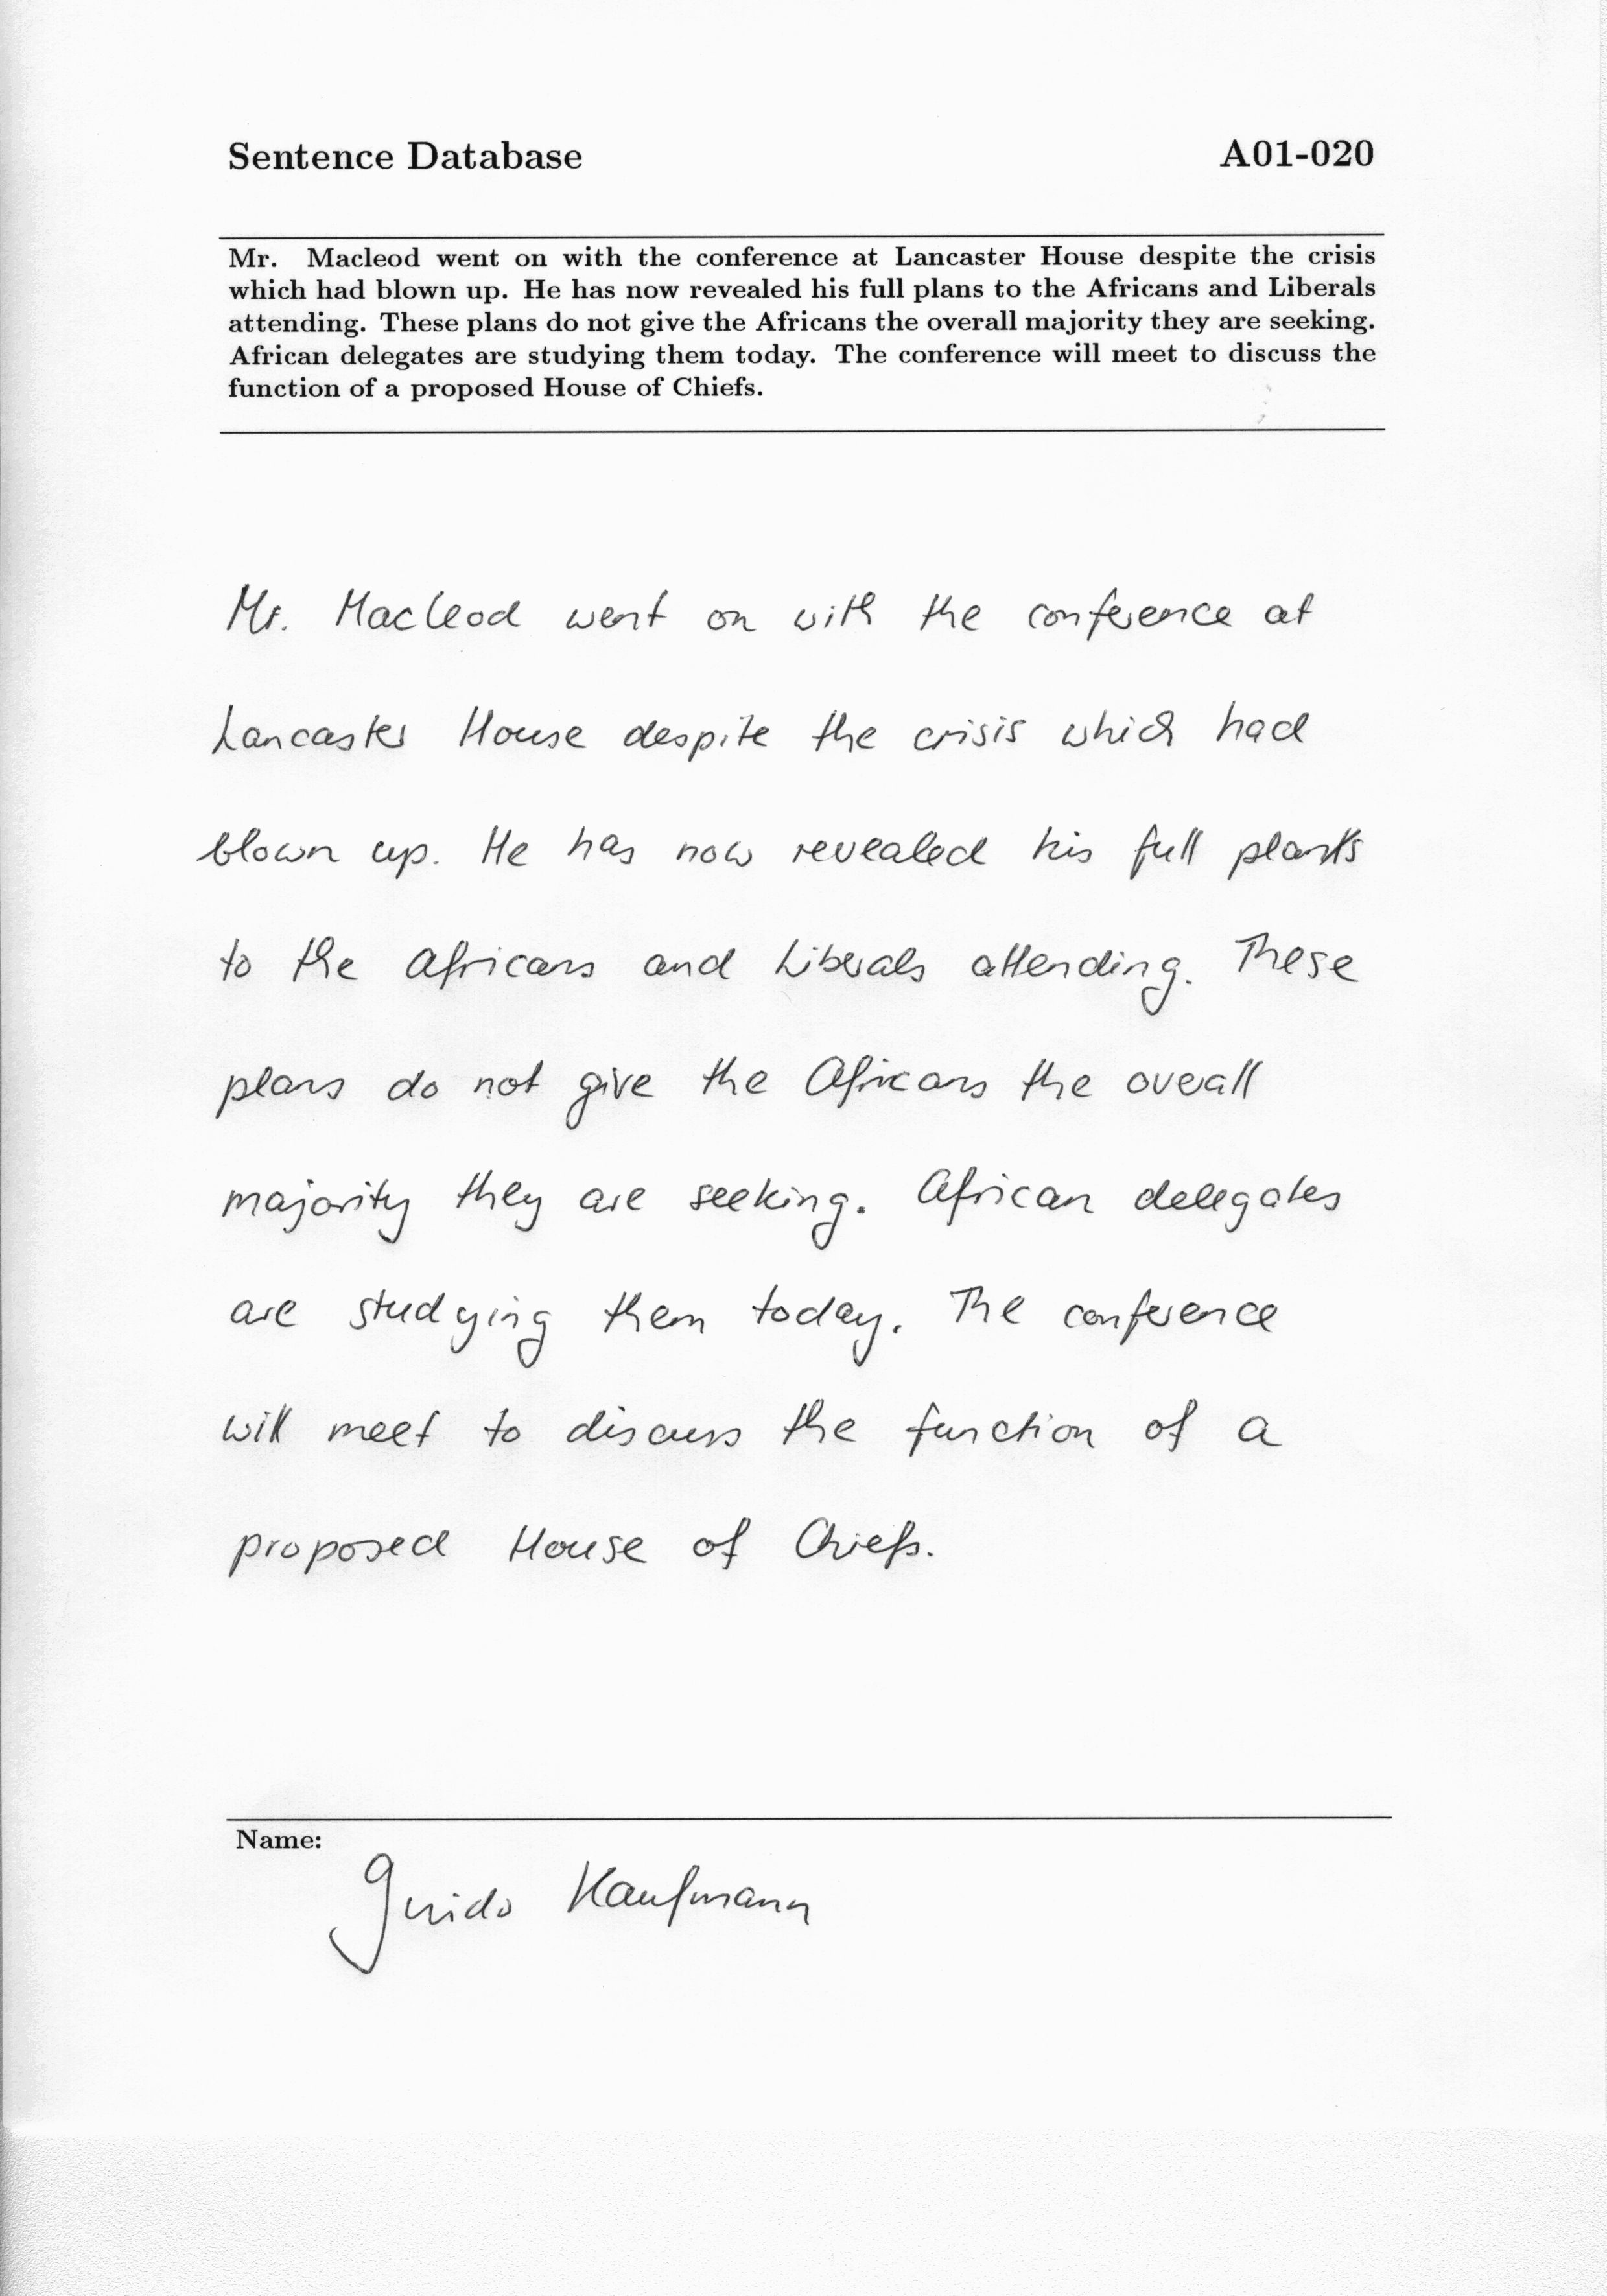 Sentence Database A01-020
Mr. Macleod went on with the conference at Lancaster House despite the crisis
which had blown up. He has now revealed his full plans to the Africans and Liberals
attending. These plans do not give the Africans the overall majority they are seeking.
African delegates are studying them today. The conference will meet to discuss the
function of a proposed House of Chiefs.
Mr. Macleod went on with the conference at
Lancaster House despite the crisis which had
blown up. He has now revealed his full
to the Africans and Liberals attending. These
plans do not give the Africans the overall
majority they are seeking. African delegates
are studying them today. The conference
will meet to discuss the function of a
proposed House of Chiefs.
Name:
Guido Kaufmann